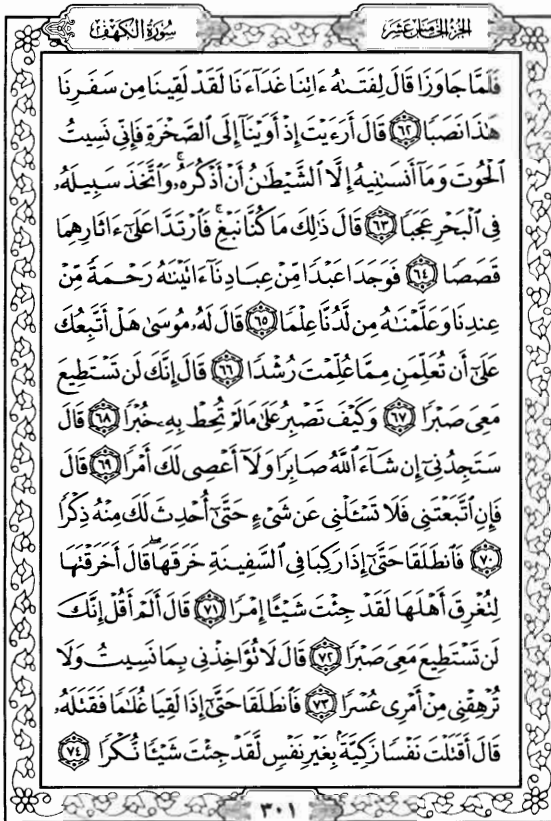 الجزء الخامس عشر
سورة الكهف
فَلَمَّا جَاوَزَا قَالَ لِفَتَىٰهُ ءَاتِنَا غَدَآءَنَا لَقَدْ لَقِينَا مِن سَفَرِنَا
هَٰذَا نَصَبًا ﴿٦٢﴾ قَالَ أَرَءَيْتَ إِذْ أَوَيْنَآ إِلَى ٱلصَّخْرَةِ فَإِنِّى نَسِيتُ
ٱلْحُوتَ وَمَآ أَنسَىٰنِيهُ إِلَّا ٱلشَّيْطَٰنُ أَنْ أَذْكُرَهُۥۚ وَٱتَّخَذَ سَبِيلَهُۥ
فِى ٱلْبَحْرِ عَجَبًا ﴿٦٣﴾ قَالَ ذَٰلِكَ مَا كُنَّا نَبْغِۚ فَٱرْتَدَّا عَلَىٰٓ ءَاثَارِهِمَا
قَصَصًا ﴿٦٤﴾ فَوَجَدَا عَبْدًا مِّنْ عِبَادِنَآ ءَاتَيْنَٰهُ رَحْمَةً مِّنْ
عِندِنَا وَعَلَّمْنَٰهُ مِن لَّدُنَّا عِلْمًا ﴿٦٥﴾ قَالَ لَهُۥ مُوسَىٰ هَلْ أَتَّبِعُكَ
عَلَىٰٓ أَن تُعَلِّمَنِ مِمَّا عُلِّمْتَ رُشْدًا ﴿٦٦﴾ قَالَ إِنَّكَ لَن تَسْتَطِيعَ
مَعِىَ صَبْرًا ﴿٦٧﴾ وَكَيْفَ تَصْبِرُ عَلَىٰ مَا لَمْ تُحِطْ بِهِۦ خُبْرًا ﴿٦٨﴾ قَالَ
سَتَجِدُنِىٓ إِن شَآءَ ٱللَّهُ صَابِرًا وَلَآ أَعْصِى لَكَ أَمْرًا ﴿٦٩﴾ قَالَ
فَإِنِ ٱتَّبَعْتَنِى فَلَا تَسْـَٔلْنِى عَن شَىْءٍ حَتَّىٰٓ أُحْدِثَ لَكَ مِنْهُ ذِكْرًا
﴿٧٠﴾ فَٱنطَلَقَا حَتَّىٰٓ إِذَا رَكِبَا فِى ٱلسَّفِينَةِ خَرَقَهَاۖ قَالَ أَخَرَقْتَهَا
لِتُغْرِقَ أَهْلَهَا لَقَدْ جِئْتَ شَيْـًٔا إِمْرًا ﴿٧١﴾ قَالَ أَلَمْ أَقُلْ إِنَّكَ
لَن تَسْتَطِيعَ مَعِىَ صَبْرًا ﴿٧٢﴾ قَالَ لَا تُؤَاخِذْنِى بِمَا نَسِيتُ وَلَا
تُرْهِقْنِى مِنْ أَمْرِى عُسْرًا ﴿٧٣﴾ فَٱنطَلَقَا حَتَّىٰٓ إِذَا لَقِيَا غُلَٰمًا فَقَتَلَهُۥ
قَالَ أَقَتَلْتَ نَفْسًا زَكِيَّةًۢ بِغَيْرِ نَفْسٍ لَّقَدْ جِئْتَ شَيْـًٔا نُّكْرًا ﴿٧٤﴾
٣٠١